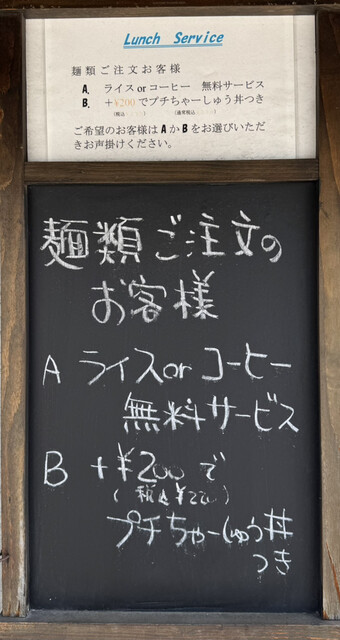 Lunch Service
麺類ご注文お客様
A. ライス or コーヒー 無料サービス
B. +¥200 でプチちゃーしゅう丼つき
ご希望のお客様は A か B をお選びいただ
きお声掛けください。
麺類ご注文の
お客様
A ライスor コーヒー
無料サービス
B +¥200で
(税込¥220)
プチちゃーしゅう丼
つき